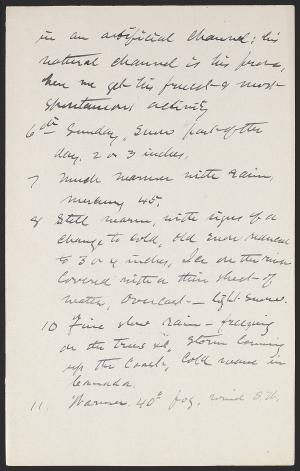 in an artificial channel; his
natural channel is his prose,
here we get his freest & most
spontaneous activity
6th Sunday, Snow part of the
day, 2 or 3 inches.
7 Much warmer with rain,
mercury 45.
8 Still warm, with signs of a
change to cold, old snow reduced
to 3 or 4 inches, ice on the river
covered with a thin sheet of
water, overcast — light snow.
10 Fine slow rain — freezing
on the trees &c, storm coming
up the Coast, Cold wave in
Canada.
11. Warmer. 40° fog, wind S.W.